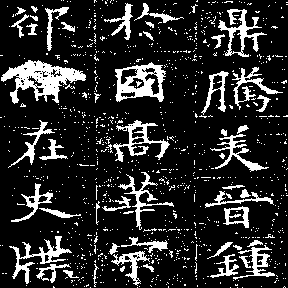 鼎騰美晉鍾
於國高華宗
在史牒